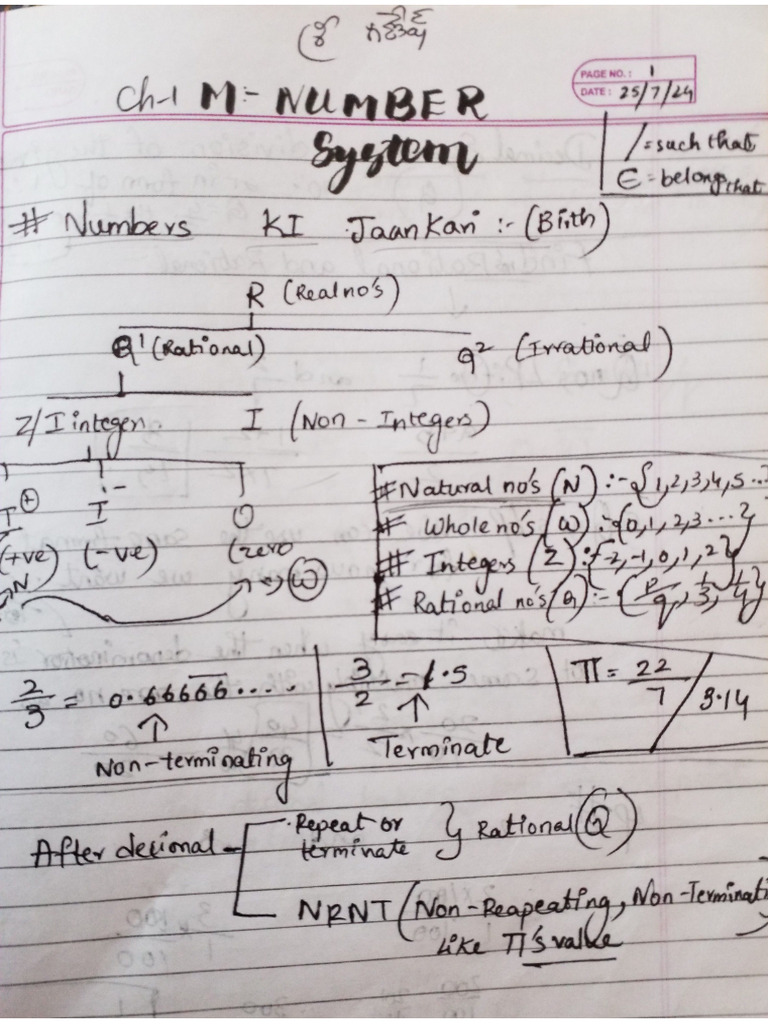 PAGE NO.: 1
DATE: 25/7/24
Ch-1 M:- NUMBER
System
/=such that
∈=belong that
# Numbers KI Jaankari :- (Birth)
R (Real no's)
Q¹ (Rational)
Q² (Irrational)
Z/I integer
I (Non-Integers)
I⊕
I
O
(+ve) (-ve) (zero
N
→ W
# Natural no's (N) :- {1,2,3,4,5...
# Whole no's (W) :- {0,1,2,3...}
# Integers (Z) :{-2,-1,0,1,2}
# Rational no's (Q) :- {p/q, 1/3, 1/4}
2/3 = 0.66666....
Non-terminating
3/2 = 1.5
Terminate
π = 22/7 / 3.14
After decimal
Repeat or
terminate
} Rational (Q)
NRNT (Non-Reapeating, Non-Terminati
Like π's value